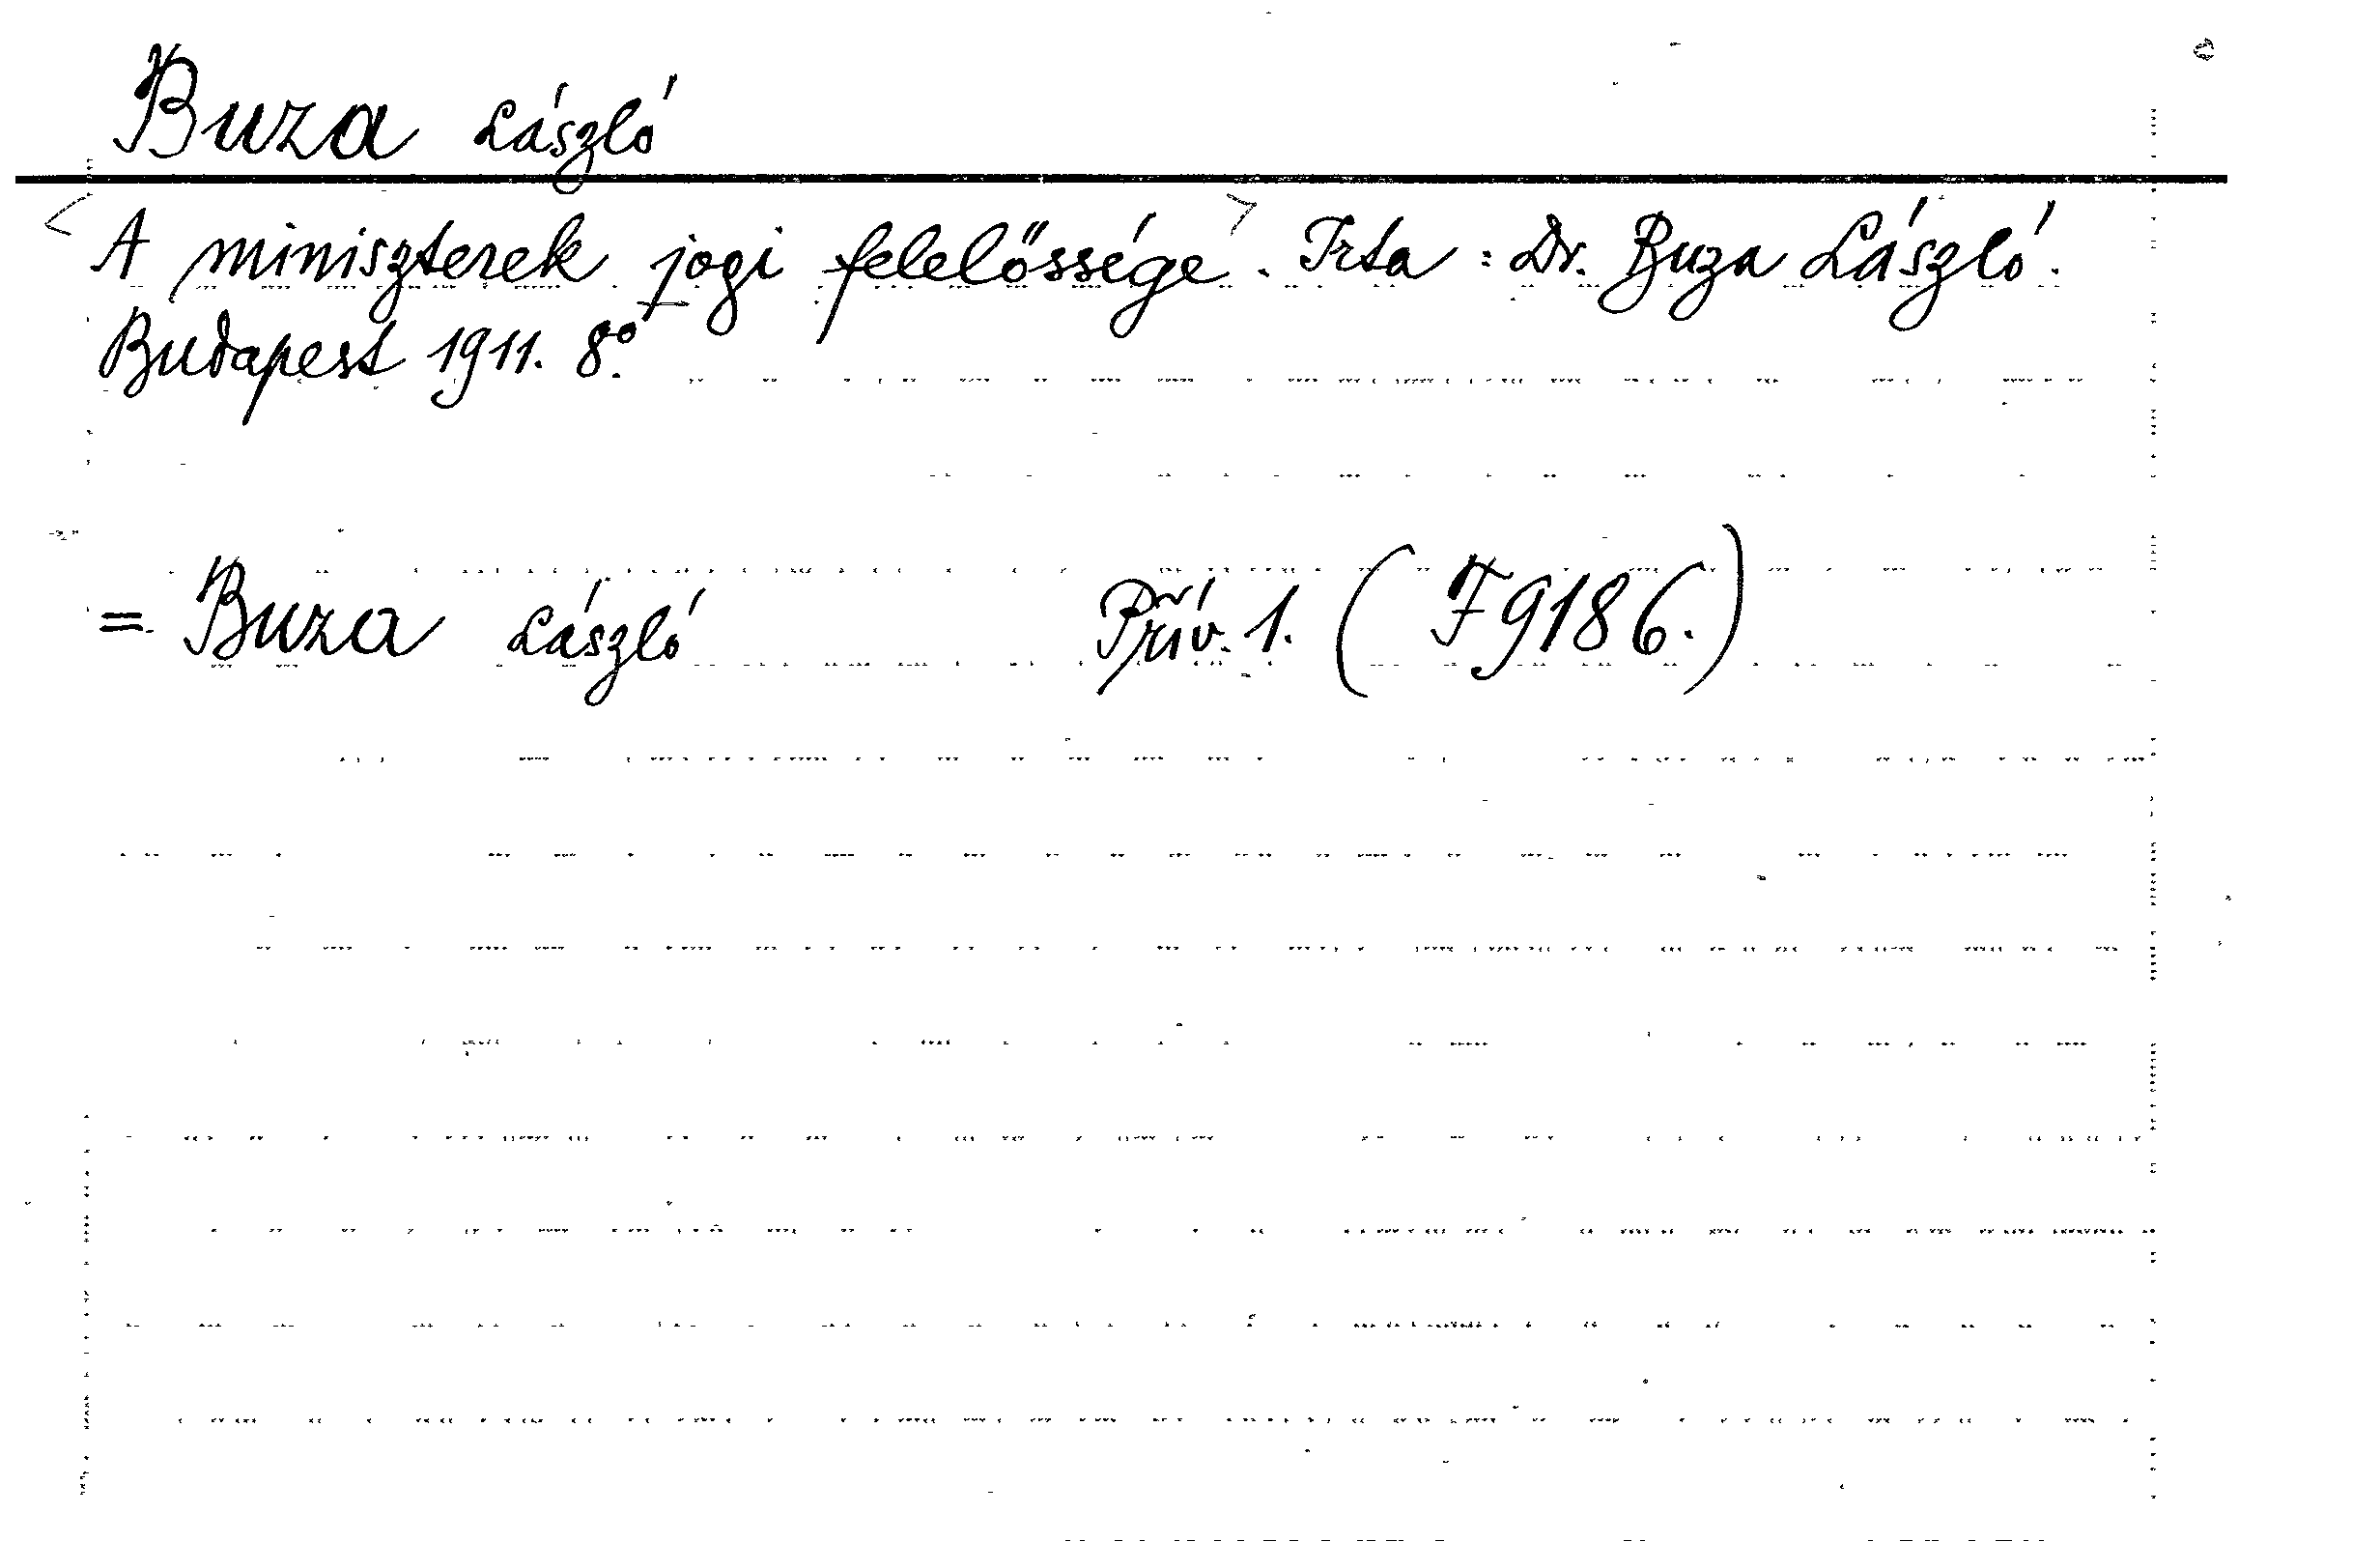 Buza László
<A miniszterek jogi felelőssége>. Irta: Dr. Buza László.
Budapest 1911. 8°.
= Buza László Přív. 1. (F 9186.)